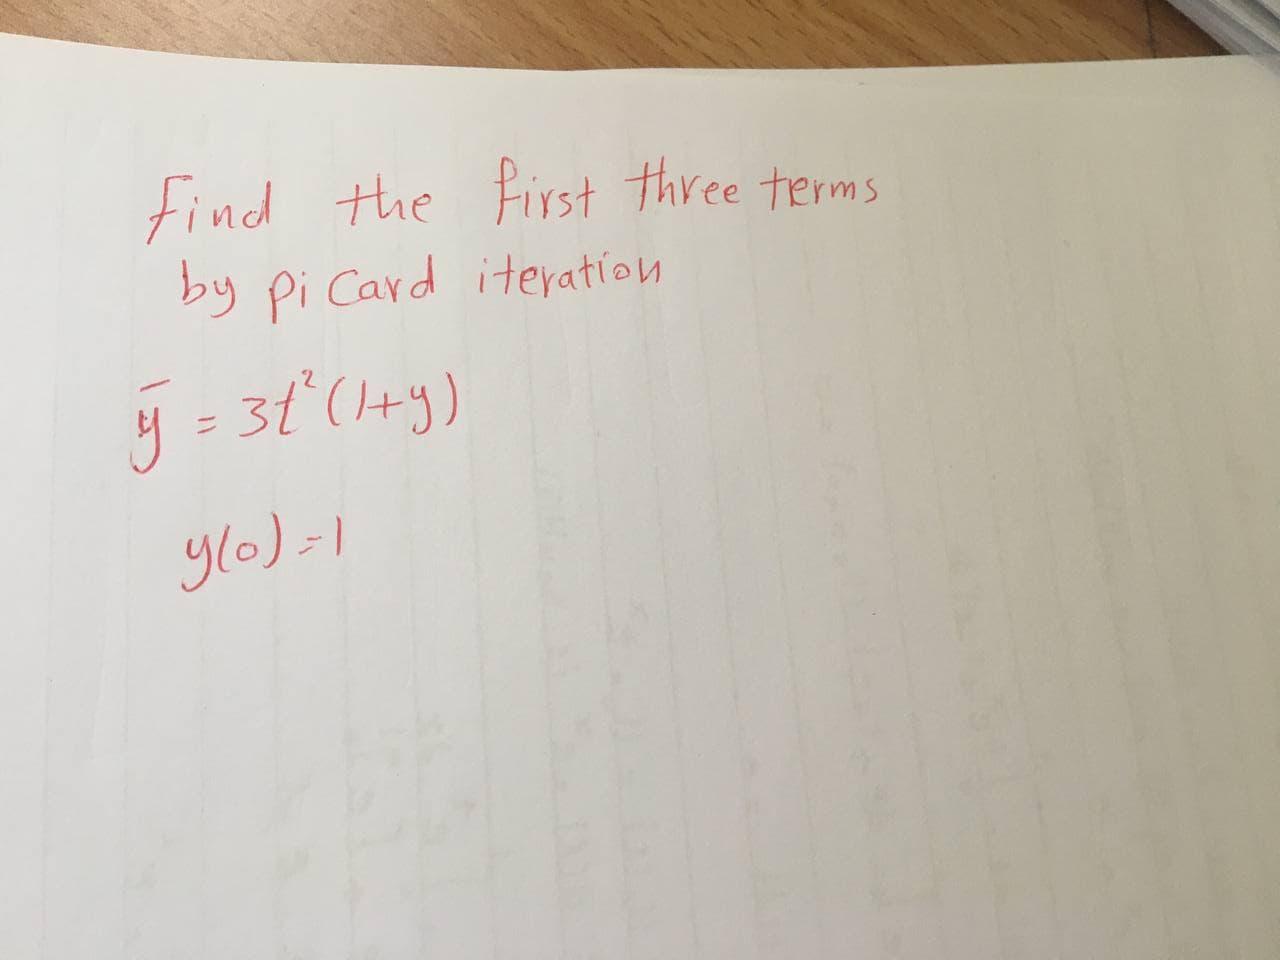 Find the first three terms
by piCard iteration
ȳ = 3t²(1+y)
y(0)=1